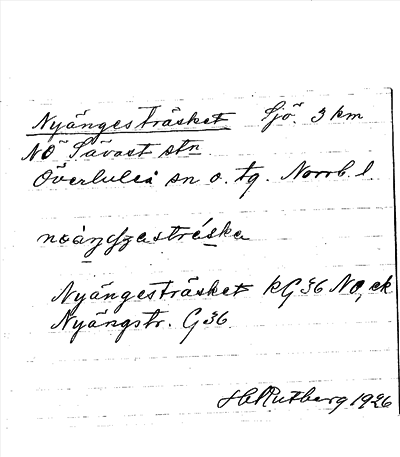 Nyängesträsket Sjö. 3 km
NÖ Sävast stn
Överluleå sn o. tg. Norrb. l.
Nyängesträsket kG36 NO, ek
Nyängstr. G36.
H Rutberg 1926